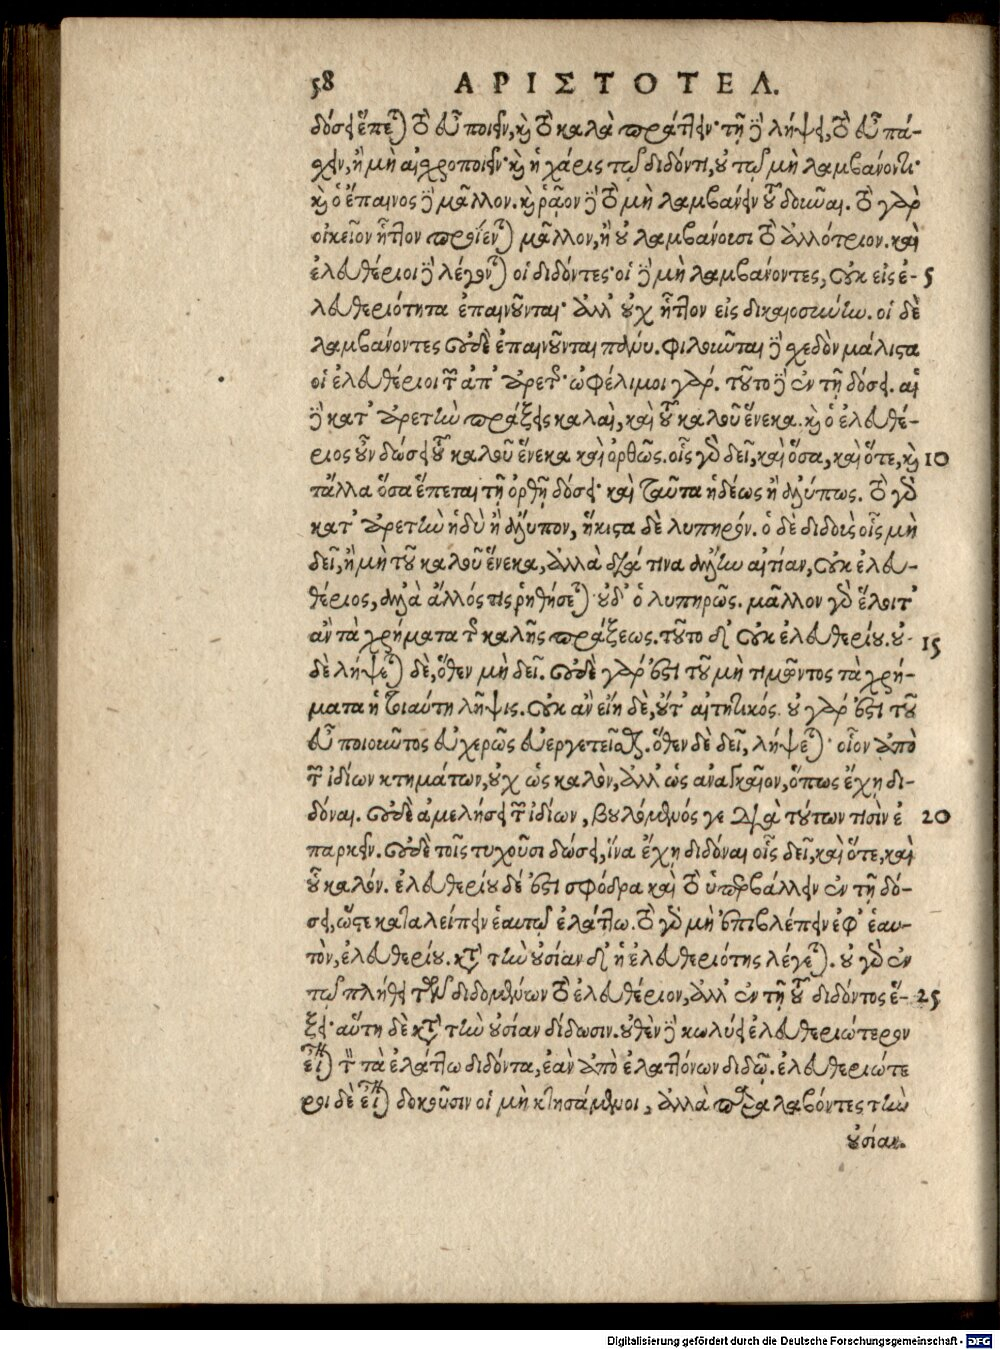 58 ΑΡΙΣΤΟΤΕΛ.
δόσει ἕπεται τὸ εὖ ποιεῖν, καὶ τὸ καλὰ πράττειν· τῇ δὲ λήψει, τὸ εὖ πά-
σχειν, ἢ μὴ αἰσχροποιεῖν· καὶ ἡ χάρις τῷ διδόντι, οὐ τῷ μὴ λαμβάνοντι·
καὶ ὁ ἔπαινος δὲ μᾶλλον. καὶ ῥᾷον δὲ τὸ μὴ λαμβάνειν τοῦ δοῦναι. τὸ γὰρ
οἰκεῖον ἧττον προΐενται μᾶλλον, ἢ οὐ λαμβάνουσι τὸ ἀλλότριον. καὶ
ἐλευθέριοι δὲ λέγονται οἱ διδόντες· οἱ δὲ μὴ λαμβάνοντες, οὐκ εἰς ἐ- 5
λευθεριότητα ἐπαινοῦνται· ἀλλ' οὐχ ἧττον εἰς δικαιοσύνην. οἱ δὲ
λαμβάνοντες οὐδὲ ἐπαινοῦνται πάνυ. φιλοῦνται δὲ σχεδὸν μάλιστα
οἱ ἐλευθέριοι τῶν ἀπ' ἀρετῆς· ὠφέλιμοι γάρ. τοῦτο δὲ ἐν τῇ δόσει. αἱ
δὲ κατ' ἀρετὴν πράξεις καλαὶ, καὶ τοῦ καλοῦ ἕνεκα. καὶ ὁ ἐλευθέ-
ριος οὖν δώσει τοῦ καλοῦ ἕνεκα καὶ ὀρθῶς. οἷς γὰρ δεῖ, καὶ ὅσα, καὶ ὅτε, καὶ 10
τἄλλα ὅσα ἕπεται τῇ ὀρθῇ δόσει· καὶ ταῦτα ἡδέως ἢ ἀλύπως. τὸ γὰρ
κατ' ἀρετὴν ἡδὺ ἢ ἄλυπον, ἥκιστα δὲ λυπηρόν. ὁ δὲ διδοὺς οἷς μὴ
δεῖ, ἢ μὴ τοῦ καλοῦ ἕνεκα, ἀλλὰ διά τινα ἄλλην αἰτίαν, οὐκ ἐλευ-
θέριος, ἀλλὰ ἄλλός τις ῥηθήσεται· οὐδ' ὁ λυπηρῶς. μᾶλλον γὰρ ἕλοιτ'
ἂν τὰ χρήματα τῆς καλῆς πράξεως. τοῦτο δ' οὐκ ἐλευθερίου. οὐ- 15
δὲ λήψεται δὲ, ὅθεν μὴ δεῖ. οὐδὲ γάρ ἐστι τοῦ μὴ τιμῶντος τὰ χρή-
ματα ἡ τοιαύτη λῆψις. οὐκ ἂν εἴη δὲ, οὔτ' αἰτητικός. οὐ γάρ ἐστι τοῦ
εὖ ποιοῦντος εὐχερῶς εὐεργετεῖσθαι. ὅθεν δὲ δεῖ, λήψεται· οἷον ἀπὸ
τῶν ἰδίων κτημάτων, οὐχ ὡς καλὸν, ἀλλ' ὡς ἀναγκαῖον, ὅπως ἔχῃ δι-
δόναι. οὐδὲ ἀμελήσει τῶν ἰδίων, βουλόμενός γε διὰ τούτων τισὶν ἐ 20
παρκεῖν. οὐδὲ τοῖς τυχοῦσι δώσει, ἵνα ἔχῃ διδόναι οἷς δεῖ, καὶ ὅτε, καὶ
οὗ καλόν. ἐλευθερίου δέ ἐστι σφόδρα καὶ τὸ ὑπερβάλλειν ἐν τῇ δό-
σει, ὥστε καταλείπειν ἑαυτῷ ἐλάττω. τὸ γὰρ μὴ ἐπιβλέπειν ἐφ' ἑαυ-
τὸν, ἐλευθερίου. κατὰ τὴν οὐσίαν δ' ἡ ἐλευθεριότης λέγεται. οὐ γὰρ ἐν
τῷ πλήθει τῶν διδομένων τὸ ἐλευθέριον, ἀλλ' ἐν τῇ τοῦ διδόντος ἕ- 25
ξει· αὕτη δὲ κατὰ τὴν οὐσίαν δίδωσιν. οὐθὲν δὲ κωλύει ἐλευθεριώτερον
εἶναι τὸν τὰ ἐλάττω διδόντα, ἐὰν ἀπὸ ἐλαττόνων διδῷ. ἐλευθεριώτε
ροι δὲ εἶναι δοκοῦσιν οἱ μὴ κτησάμενοι, ἀλλὰ παραλαβόντες τὴν
οὐσίαν.
Digitalisierung gefördert durch die Deutsche Forschungsgemeinschaft - DFG